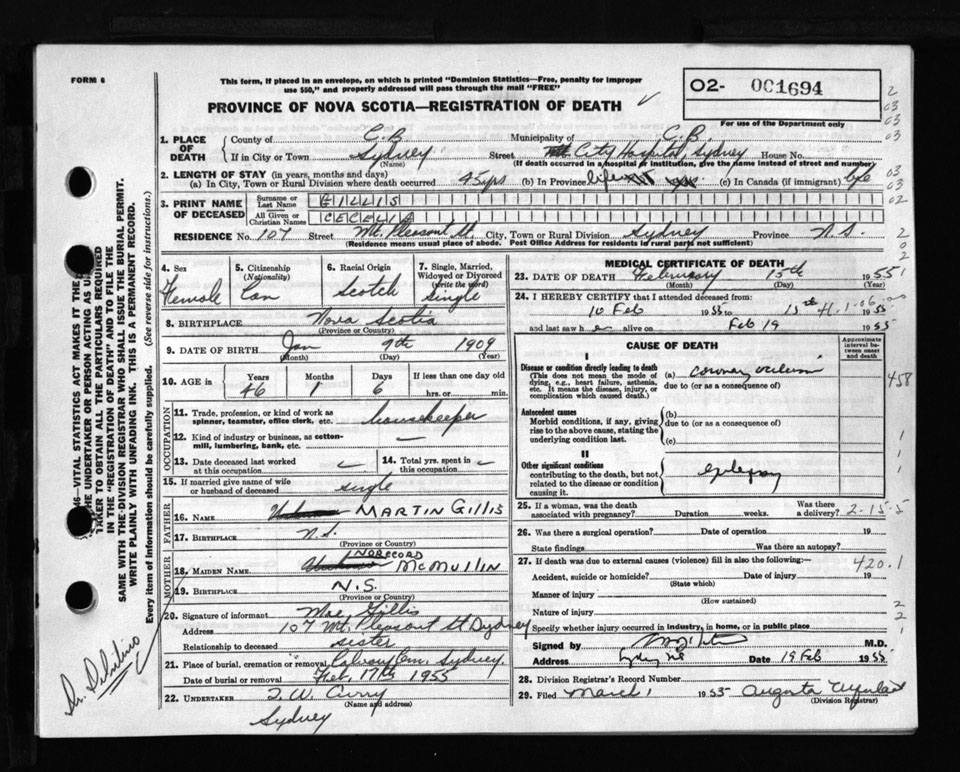 FORM 6
This form, if placed in an envelope, on which is printed "Dominion Statistics—Free, penalty for improper
use $50," and properly addressed will pass through the mail "FREE"
PROVINCE OF NOVA SCOTIA—REGISTRATION OF DEATH ✓
O2- 001694
For use of the Department only
2
03
03
03
03
03
02
2
0
2
1. PLACE OF DEATH
County of C.B. Municipality of C.B.
If in City or Town Sydney Street City Hospital, Sydney House No.
(Name) (If death occurred in a hospital or institution, give the name instead of street and number)
2. LENGTH OF STAY (in years, months and days)
(a) In City, Town or Rural Division where death occurred 45 yrs (b) In Province life (c) In Canada (if immigrant) life
3. PRINT NAME OF DECEASED
Surname or Last Name GILLIS
All Given or Christian Names CECELIA
RESIDENCE No. 107 Street Mt. Pleasant St. City, Town or Rural Division Sydney Province N.S.
(Residence means usual place of abode. Post Office Address for residents in rural parts not sufficient)
4. Sex Female
5. Citizenship (Nationality) Can
6. Racial Origin Scotch
7. Single, Married, Widowed or Divorced (write the word) Single
8. BIRTHPLACE Nova Scotia
(Province or Country)
9. DATE OF BIRTH Jan 9th 1909
(Month) (Day) (Year)
10. AGE in Years Months Days If less than one day old
46 1 6 hrs. or min.
OCCUPATION
11. Trade, profession, or kind of work as
spinner, teamster, office clerk, etc. housekeeper
12. Kind of industry or business, as cotton-
mill, lumbering, bank, etc.
13. Date deceased last worked
at this occupation
14. Total yrs. spent in
this occupation
15. If married give name of wife
or husband of deceased single
FATHER
16. NAME MARTIN GILLIS
17. BIRTHPLACE N.S.
(Province or Country)
MOTHER
NO RECORD
18. MAIDEN NAME McMULLIN
19. BIRTHPLACE N.S.
(Province or Country)
20. Signature of informant Mae Gillis
Address 107 Mt. Pleasant St Sydney
Relationship to deceased sister
21. Place of burial, cremation or removal Calvary Cem. Sydney.
Date of burial or removal Feb. 17th 1955
22. UNDERTAKER T. W. Curry
(Name and address)
Sydney
MEDICAL CERTIFICATE OF DEATH
23. DATE OF DEATH February 15th 1955
(Month) (Day) (Year)
24. I HEREBY CERTIFY that I attended deceased from:
10 Feb 1955 to 15th 1955
and last saw h er alive on Feb 19 1955
CAUSE OF DEATH
Approximate interval between onset and death
I
Disease or condition directly leading to death
(This does not mean the mode of
dying, e.g., heart failure, asthenia,
etc. It means the disease, injury, or
complication which caused death.)
(a) coronary occlusion
due to (or as a consequence of)
458
Antecedent causes
Morbid conditions, if any, giving
rise to the above cause, stating the
underlying condition last.
(b)
due to (or as a consequence of)
(c)
II
Other significant conditions
contributing to the death, but not
related to the disease or condition
causing it.
epilepsy
25. If a woman, was the death
associated with pregnancy? Duration weeks. Was there a delivery?
2-15-5
26. Was there a surgical operation? Date of operation 19
State findings Was there an autopsy?
27. If death was due to external causes (violence) fill in also the following:
420.1
Accident, suicide or homicide? Date of injury 19
(State which)
Manner of injury
(How sustained)
Nature of injury
Specify whether injury occurred in industry, in home, or in public place
Signed by M.D.
Address Sydney NS Date 19 Feb 1955
28. Division Registrar's Record Number
29. Filed March 1 1955 Augusta
(Division Registrar)
VITAL STATISTICS ACT MAKES IT THE
THE UNDERTAKER OR PERSON ACTING AS
TAKER TO OBTAIN ALL THE PARTICULARS REQUIRED
IN THE "REGISTRATION OF DEATH" AND TO FILE THE
SAME WITH THE DIVISION REGISTRAR WHO SHALL ISSUE THE BURIAL PERMIT.
WRITE PLAINLY WITH UNFADING INK. THIS IS A PERMANENT RECORD.
Every item of information should be carefully supplied. (See reverse side for instructions.)